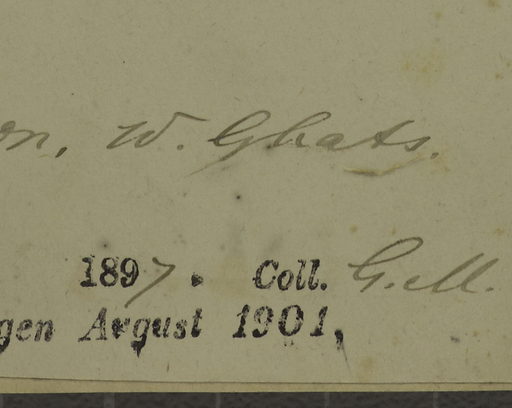 on, W. Ghats.
1897. Coll. G. M.
gen August 1901,